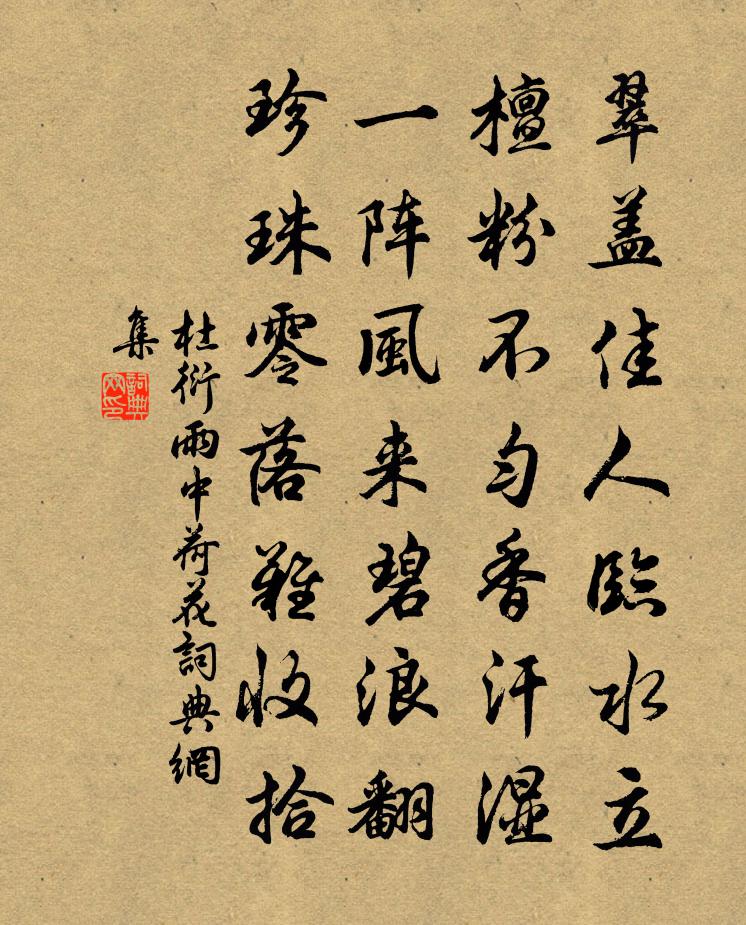 翠盖佳人臨水立
檀粉不匀香汗湿
一阵風来碧浪翻
珍珠零落難收拾
杜衍雨中荷花詞典網
集
詞典
网印